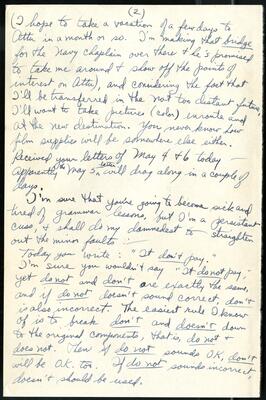 (2)
(I hope to take a vacation of a few days to
Attu in a month or so. I'm making that bridge
for the navy chaplain over there & he's promised
to take me around & show off the points of
interest on Attu), and considering the fact that
I'll be transferred in the not too distant future,
I'll want to take pictures (color) enroute and
at the new destination. You never know how
film supplies will be somewhere else either.
Received your letters of May 4 & 6 today —
apparently the May 5th letter will drag along in a couple of
days.
I'm sure that you're going to become sick and
tired of grammar lessons, but I'm a persistant
cuss, & shall do my damnedest to straighten
out the minor faults:
Today you wrote: "It don't pay."
I'm sure you wouldn't say "It do not pay;"
yet do not and don't are exactly the same,
and if do not doesn't sound correct, don't
is also incorrect. The easiest rule I know
of is to break don't and doesn't down
to the original components, that is, do not &
does not. Then if do not sounds OK, don't
will be O.K. too. If do not sounds incorrect,
doesn't should be used.